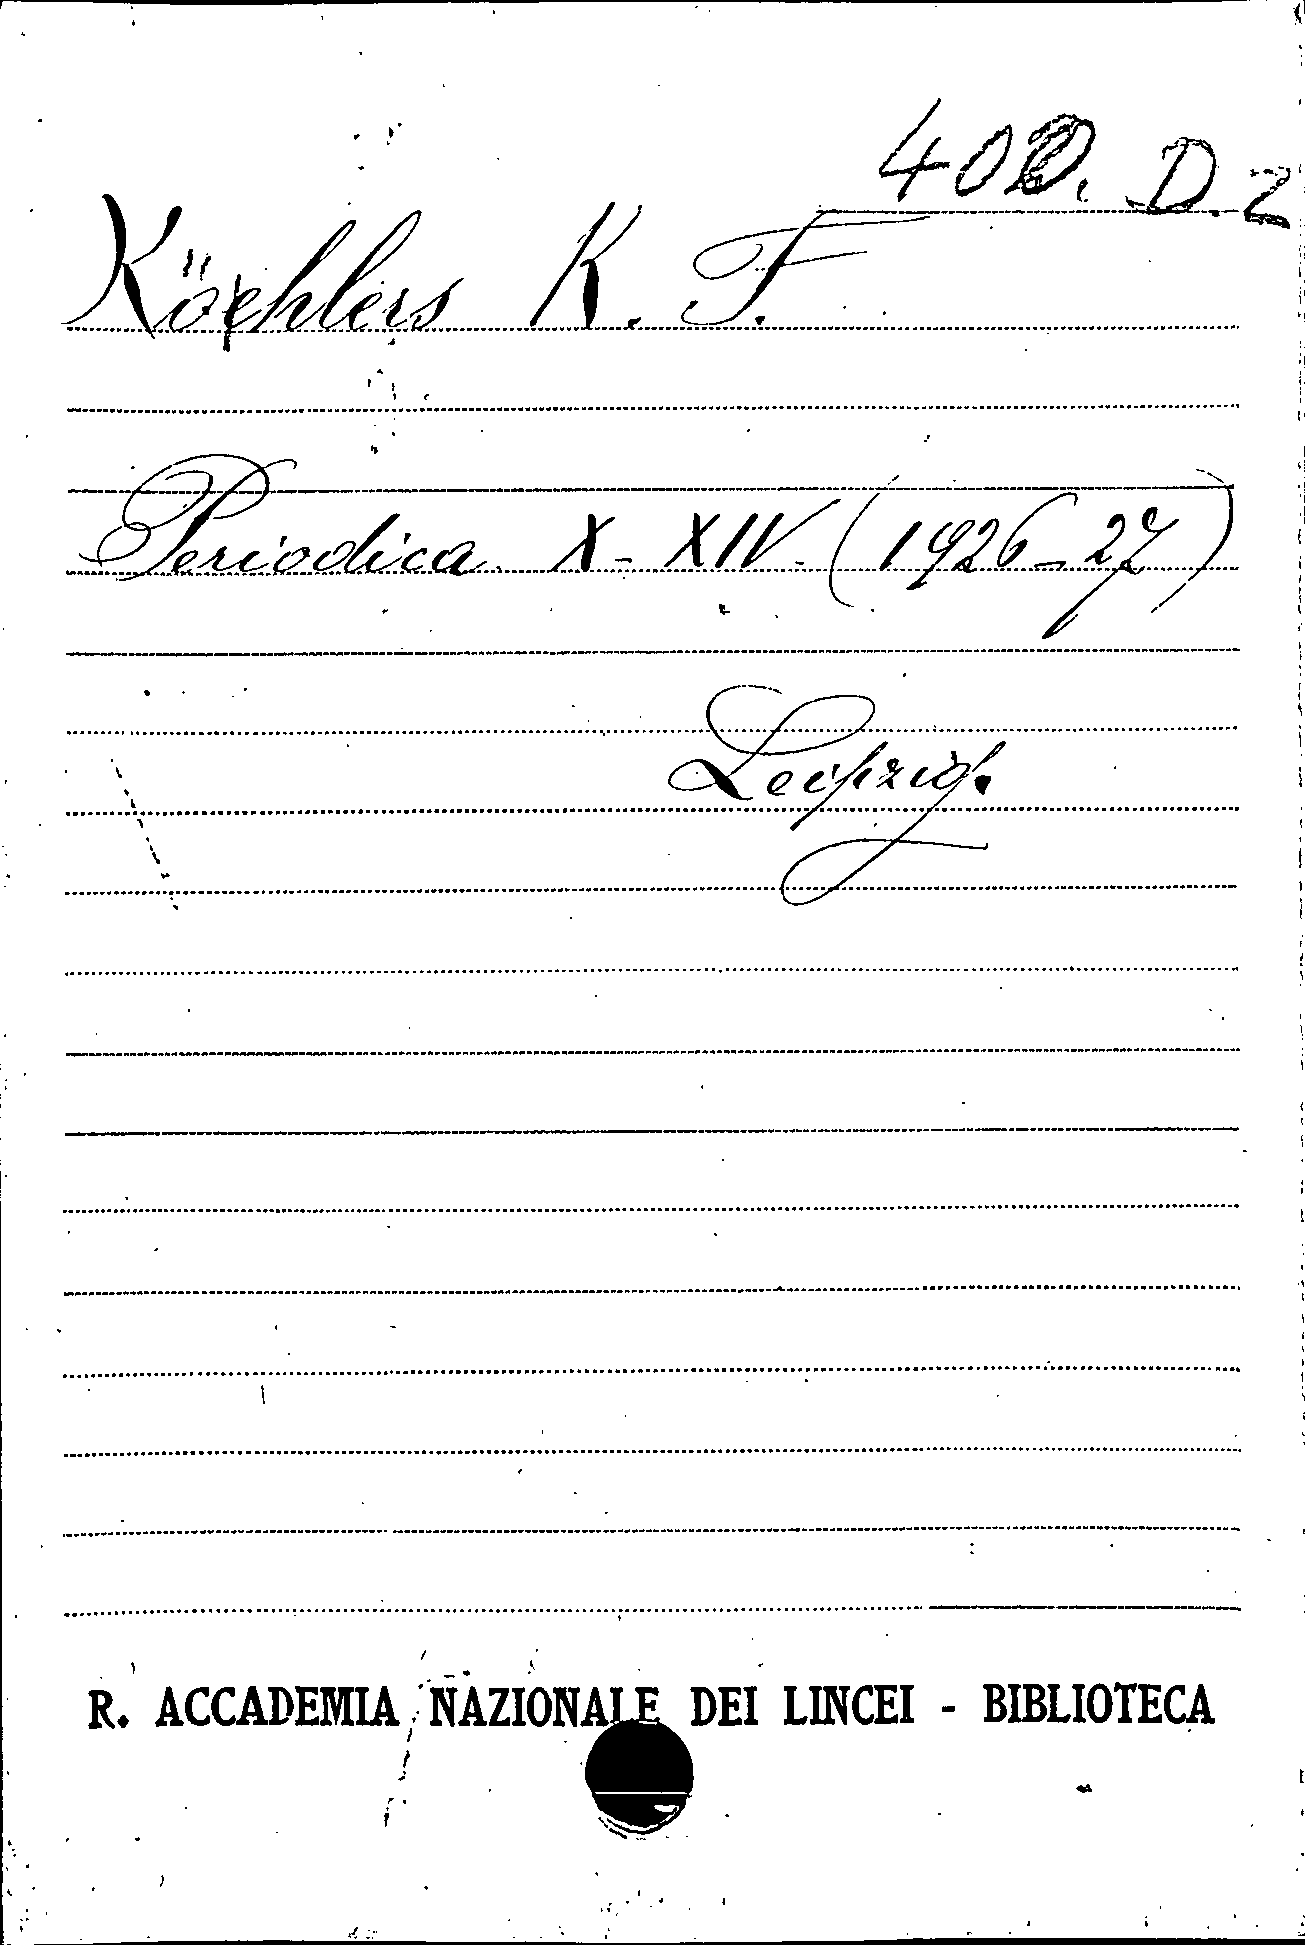 D.2
Köehlers K. F.
Periodica X - XIV. (1926-27)
Leipzig.
R. ACCADEMIA NAZIONALE DEI LINCEI - BIBLIOTECA